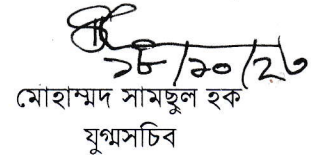 ১৮/১০/২৩
মোহাম্মদ সামছুল হক
যুগ্মসচিব